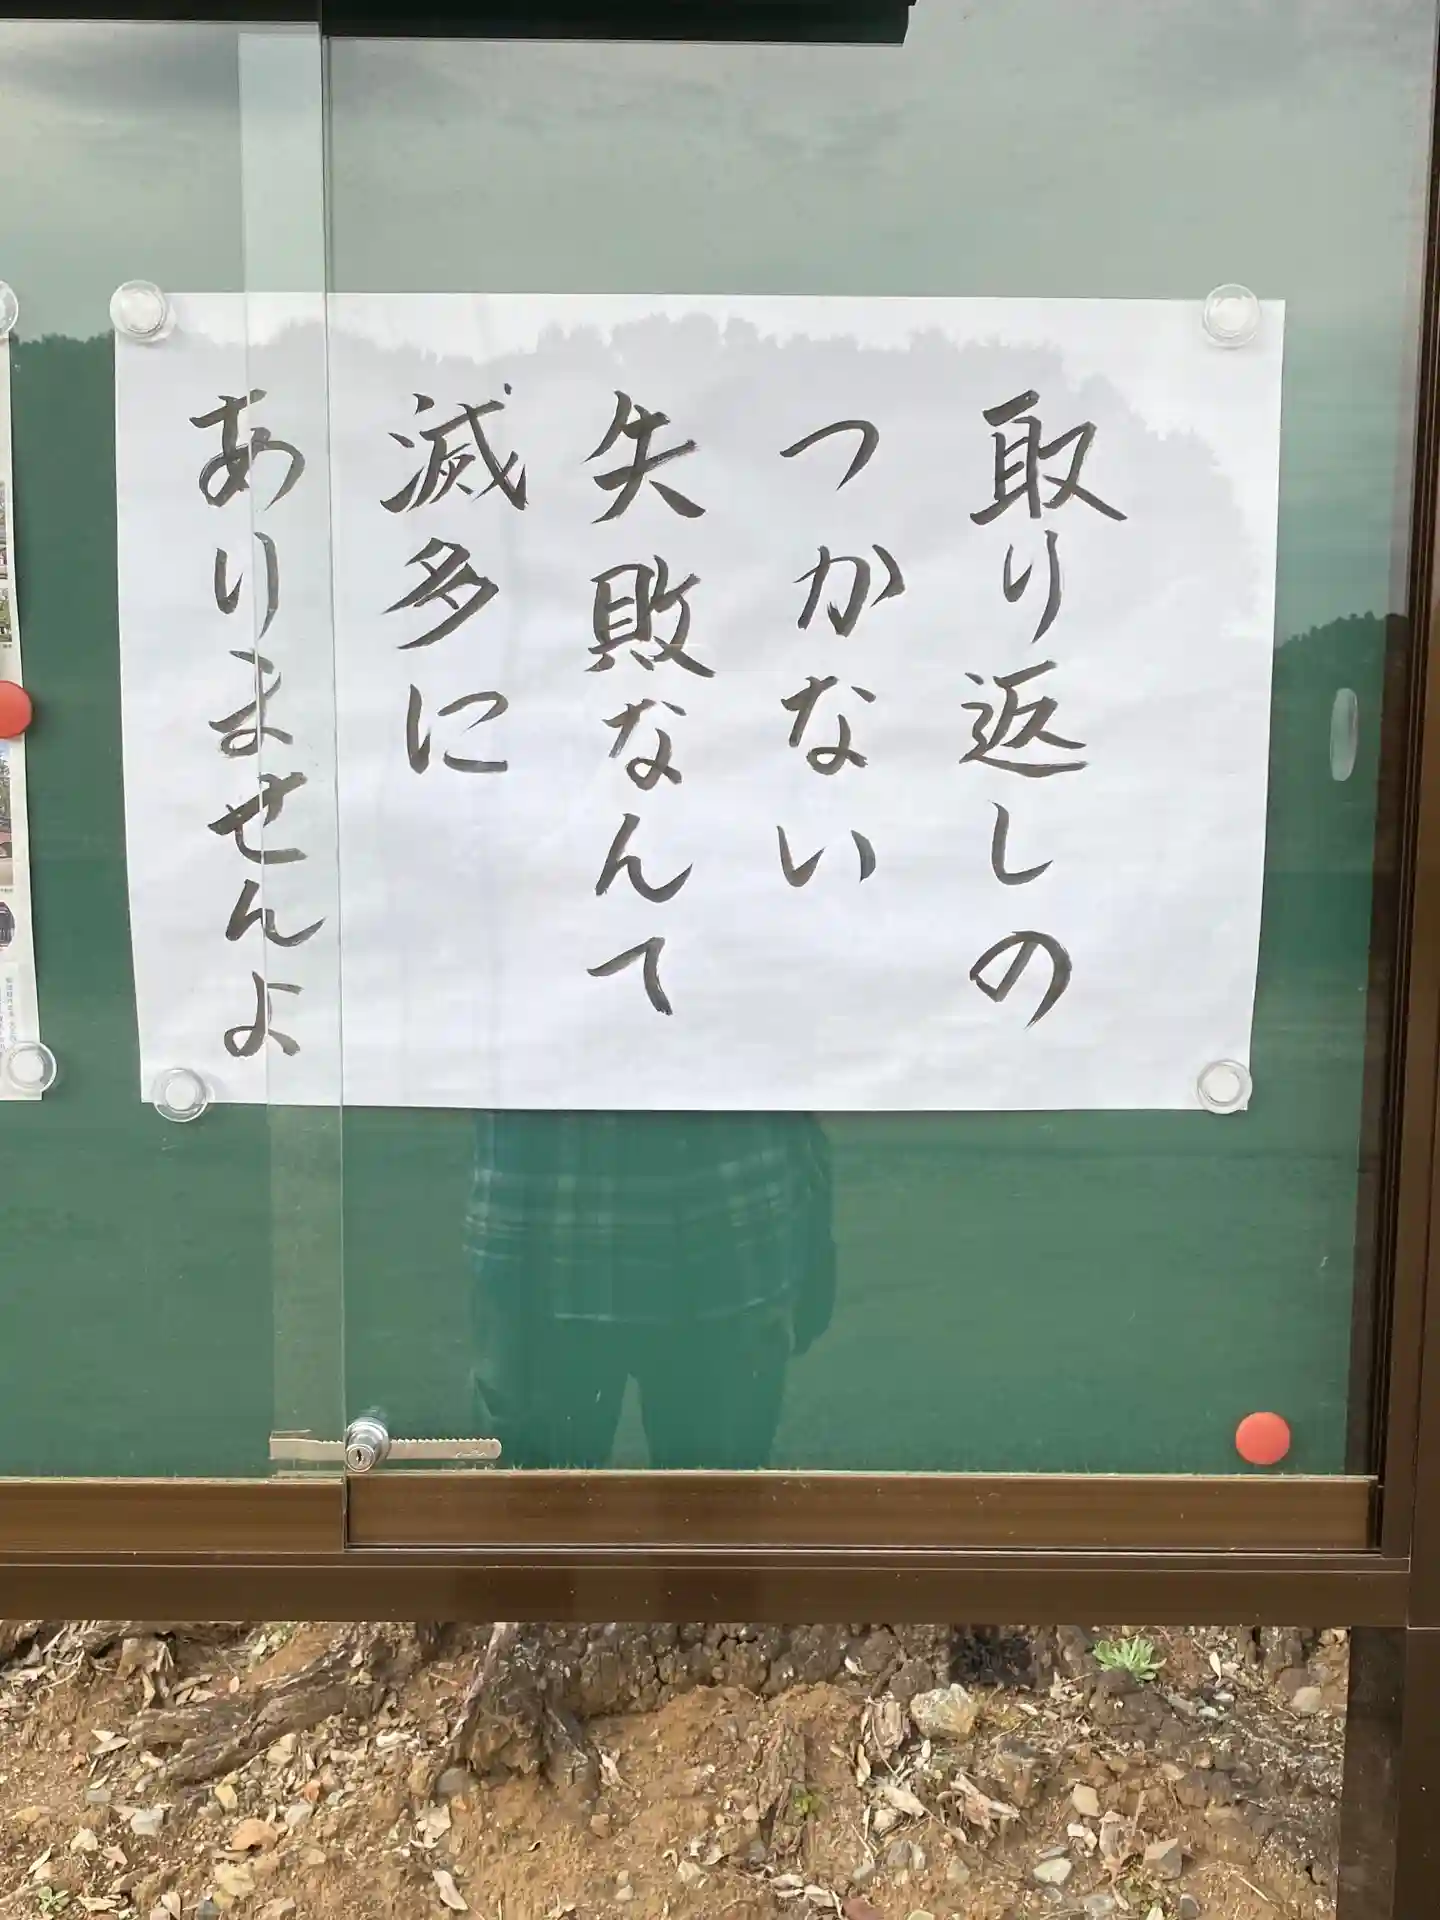 取り返しの
つかない
失敗なんて
滅多に
ありませんよ